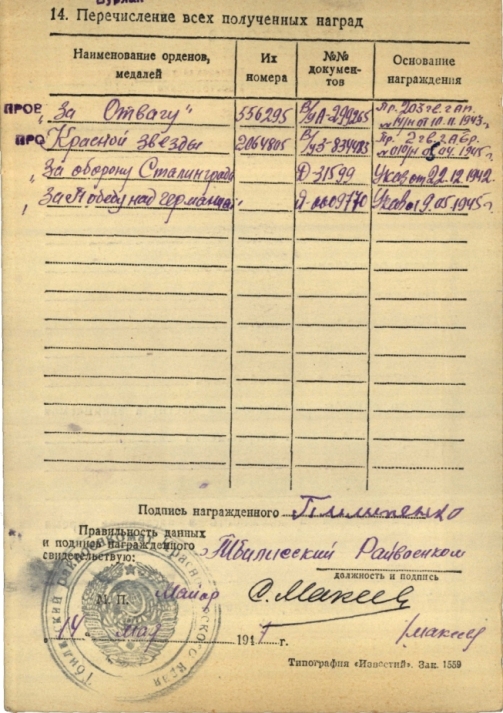 14. Перечисление всех полученных наград
Наименование орденов, медалей
Их номера
№№ документов
Основание награждения
ПРОВ „За Отвагу" 556295 В/уА-294965 Пр. 203
от 10.11.1943г.
ПРО Красной Звезды 2064805 В/уЗ-834483 Пр. 2
04. 1945г.
„За оборону Сталинграда Д-31599 Указ от 22.12.1942
„За Победу над Германией" Указ от 9.05.1945г.
Подпись награжденного Пилипенко
Правильность данных
и подпись награжденного
свидетельствую: Тбилисский Райвоенком
должность и подпись
М. П. Майор С. Макеев
14 мая 194 г. /Макеев
Типография «Известий». Зак. 1559